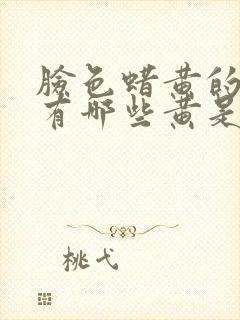 臉色蠟黃的
有哪些黃是
桃弋